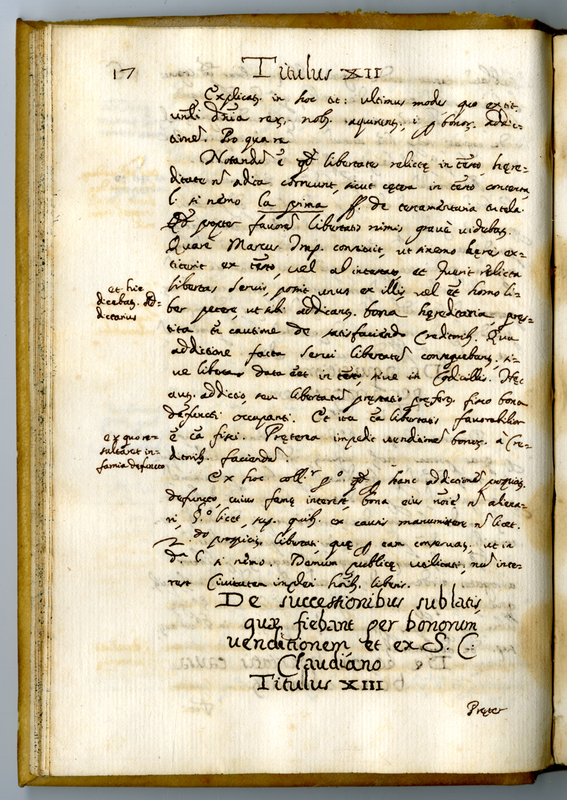 17
Titulus XII
Explicat. in hoc tit: ultimus modus quo
rex, nob. aquirunt, i p bonor. addic-
tione. Pro qua re
Notandu e qd libertate relicte in testo, hęre-
ditate n adita corruunt, sicut cęera in testo
l. si nemo la prima ff. de testamentaria tutela.
propter favore libertatis nimis grave videbat.
Quare Marcus Imp. constituit, ut si nemo heres ex-
titerit ex testo, vel ab intestato, et fuerit relicta
libertas servis, possit unus ex illis, vel et homo li-
ber petere, ut sibi addicant. bona hęreditaria, pręs-
tita tn cautione de satisfaciendo Creditorib. Qua
additione facta servi libertate consequebant, si-
ve libertas data est in testo, sive in Codicillis. Hęc
aut. addictio, seu libertatu pręstatio pręfert. fisco bona
defuncti occupanti. Et ita ca libertatis favorabilior
e ca fisci. Pręterea impedit venditione bonor. a Cre-
ditorib. faciendu.
et hic
dicebat. Ad-
dictarius
ex quo re-
sultaret in-
famia defuncto
Ex hoc coll.r p.o qd hanc addictione
defuncto, cuius fame interest, bona eius noie n aliena-
ri, licet, quib. ex causis manumittere n licet.
2.do libertati, quę p eam conservat, ut in
d.a l. si nemo. Demum publicę utilitati, na inte-
rest Civitatem impleri homib. liberis.
De successionibus sublatis,
quæ fiebant per bonorum
venditionem et ex S. C.
Claudiano
Titulus XIII
Pręter